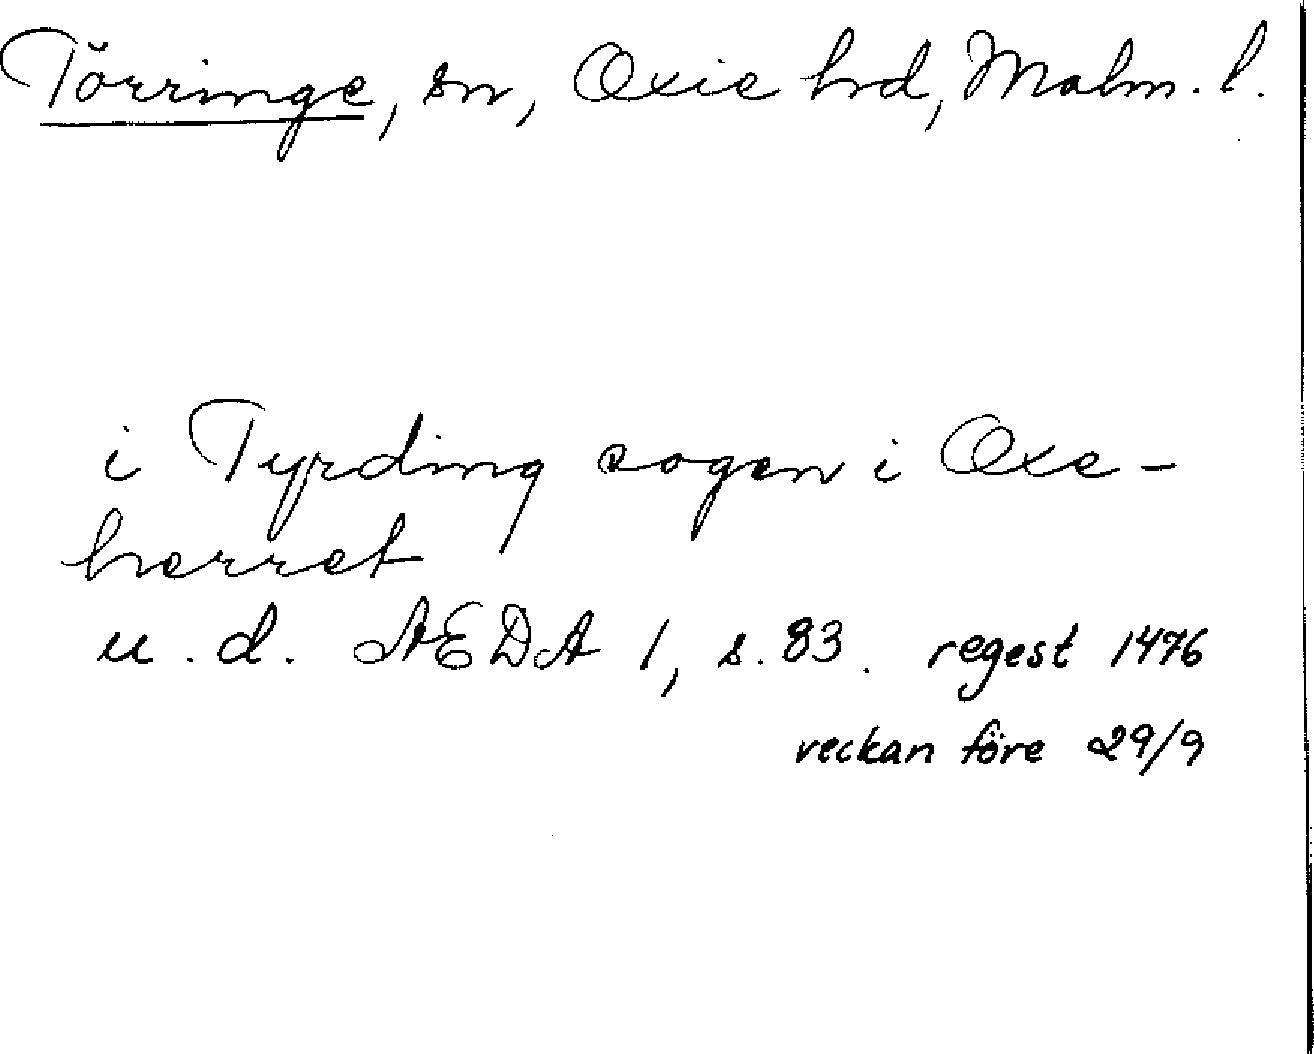 Törringe, sn, Oxie hd, Malm. l.
i Tyrding sogen i Oxe-
herret
u. d. ÆDA 1, s. 83. regest 1476
veckan före 29/9